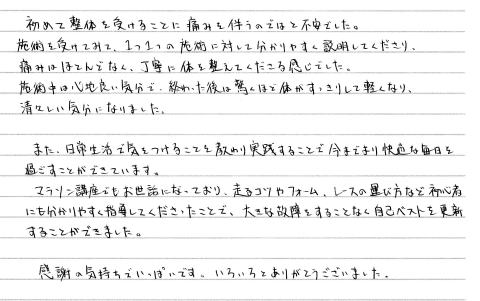 初めて整体を受けることに痛みを伴うのではと不安でした。
施術を受けてみて、1つ1つの施術に対して分かりやすく説明してくださり、
痛みはほとんどなく、丁寧に体を整えてくださる感じでした。
施術中は心地良い気分で、終わった後は驚くほど体がすっきりして軽くなり、
清々しい気分になりました。
また、日常生活で気をつけることを教わり実践することで今までより快適な毎日を
過ごすことができています。
マラソン講座でもお世話になっており、走るコツやフォーム、レースの選び方など初心者
にも分かりやすく指導してくださったことで、大きな故障をすることなく自己ベストを更新
することができました。
感謝の気持ちでいっぱいです。いろいろとありがとうございました。